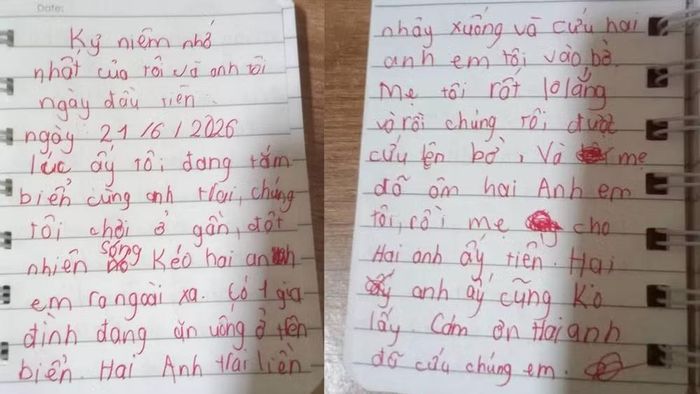 Date:
Kỷ niệm nhớ
nhất của tôi và anh tôi
ngày đầu tiên.
ngày 21/6/2026
lúc ấy tôi đang tắm
biển cùng anh trai, chúng
tôi chơi ở gần, đột
nhiên sóng kéo hai anh
em ra ngoài xa. Có 1 gia
đình đang ăn uống ở trên
biển. Hai Anh trai liền
nhảy xuống và cứu hai
anh em tôi vào bờ.
Mẹ tôi rốt lo lắng
và rồi chúng tôi được
cứu lên bờ, Và mẹ
đã ôm hai Anh em
tôi, rồi mẹ cho
Hai anh ấy tiền. Hai
anh ấy cũng Ko
lấy. Cảm ơn Hai anh
đã cứu chúng em.